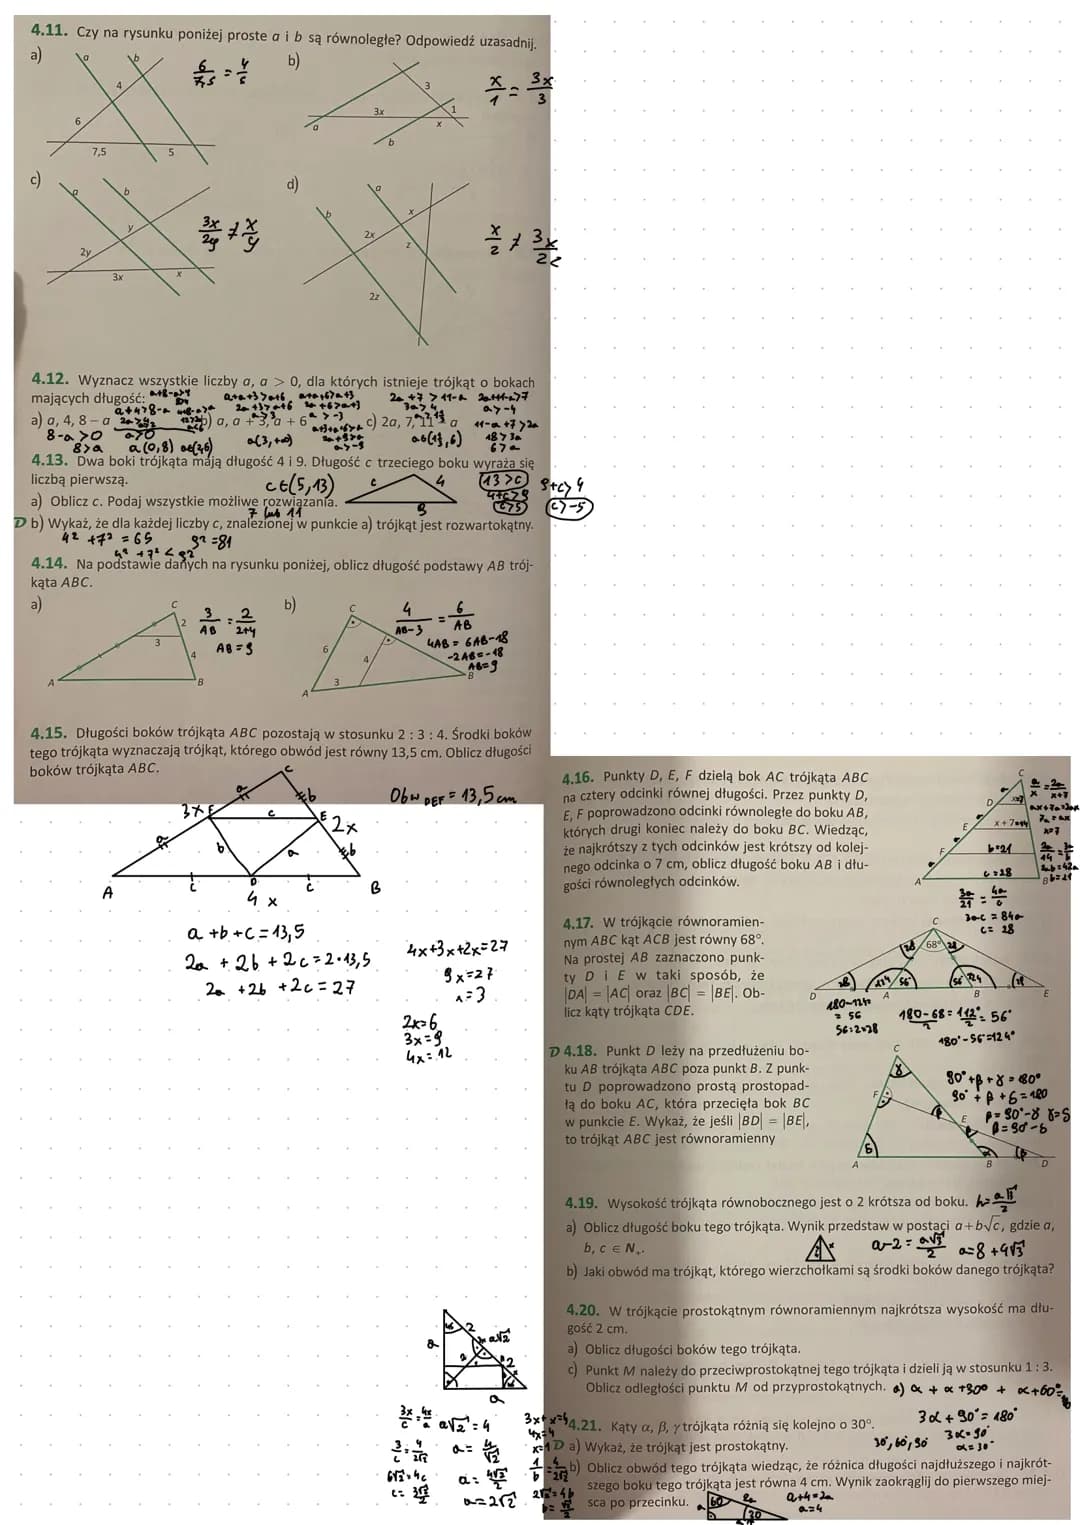 4.11. Czy na rysunku poniżej proste a i b są równoległe? Odpowiedź uzasadnij.
a)
a
b
4
6
7,5
5
6/7,5 = 4/5
b)
3
3x
1
x
a
b
x/1 = 3x/3
c)
a
b
y
2y
3x
x
3x/2y ≠ x/y
d)
a
b
x
2x
z
2z
x/2 ≠ 3x/2z
4.12. Wyznacz wszystkie liczby a, a > 0, dla których istnieje trójkąt o bokach
mających długość:
a) a, 4, 8 – a
b) a, a + 3, a + 6
c) 2a, 7, 11 – a
a+4>8-a
8-a>0
a>0
8>a
a(0,8) a∈(2,6)
a+a+3>a+6
a>3
a(3,+∞)
2a+7>11-a
3a>4
2a+11-a>7
a>-4
11-a+7>2a
18>3a
6>a
a∈(1⅓,6)
4.13. Dwa boki trójkąta mają długość 4 i 9. Długość c trzeciego boku wyraża się
liczbą pierwszą.
a) Oblicz c. Podaj wszystkie możliwe rozwiązania.
c∈(5,13)
7 lub 11
c
4
9
13>c
4+c>9
c>5
9+c>4
c>-5
D b) Wykaż, że dla każdej liczby c, znalezionej w punkcie a) trójkąt jest rozwartokątny.
4² +7² = 65 9² =81
4² +7² < 9²
4.14. Na podstawie danych na rysunku poniżej, oblicz długość podstawy AB trój-
kąta ABC.
a)
C
2
3
4
A
B
3/AB = 2/2+4
AB = 9
b)
C
6
4
3
A
B
4/AB-3 = 6/AB
4AB = 6AB-18
-2AB = -18
AB=9
4.15. Długości boków trójkąta ABC pozostają w stosunku 2 : 3 : 4. Środki boków
tego trójkąta wyznaczają trójkąt, którego obwód jest równy 13,5 cm. Oblicz długości
boków trójkąta ABC.
Obw DEF = 13,5 cm
C
a
b
3x F
c
E
2x
a
b
a
b
A
c
D
c
B
4 x
a +b +c = 13,5
2a + 2b + 2c = 2·13,5
2a +2b +2c = 27
4x+3x+2x=27
9x=27
x=3
2x=6
3x=9
4x=12
4.16. Punkty D, E, F dzielą bok AC trójkąta ABC
na cztery odcinki równej długości. Przez punkty D,
E, F poprowadzono odcinki równoległe do boku AB,
których drugi koniec należy do boku BC. Wiedząc,
że najkrótszy z tych odcinków jest krótszy od kolej-
nego odcinka o 7 cm, oblicz długość boku AB i dłu-
gości równoległych odcinków.
C
D
x=7
E
x+7=14
F
b=21
A
c=28
B
a/x = 2a/x+7
ax+7a=2ax
7a=ax
x=7
2a/14 = 3a/b
2ab=42a
b=21
3a/21 = 4a/c
3ac = 84a
c= 28
4.17. W trójkącie równoramien-
nym ABC kąt ACB jest równy 68°.
Na prostej AB zaznaczono punk-
ty D i E w taki sposób, że
|DA| = |AC| oraz |BC| = |BE|. Ob-
licz kąty trójkąta CDE.
C
28
68°
28
28
124
56°
56
124
28
D
A
B
E
180-124=
= 56
56:2=28
180-68 = 112°/2 = 56°
180°-56°=124°
D 4.18. Punkt D leży na przedłużeniu bo-
ku AB trójkąta ABC poza punkt B. Z punk-
tu D poprowadzono prostą prostopad-
łą do boku AC, która przecięła bok BC
w punkcie E. Wykaż, że jeśli |BD| = |BE|,
to trójkąt ABC jest równoramienny
C
γ
F
β
E
β
δ
α
β
A
B
D
90°+β+γ=180°
90°+β+δ=180
β=90°-γ γ=δ
β=90°-δ
4.19. Wysokość trójkąta równobocznego jest o 2 krótsza od boku. h= a√3/2
a) Oblicz długość boku tego trójkąta. Wynik przedstaw w postaci a+b√c, gdzie a,
b, c ∈ N₊.
a-2 = a√3/2 a=8+4√3
b) Jaki obwód ma trójkąt, którego wierzchołkami są środki boków danego trójkąta?
4.20. W trójkącie prostokątnym równoramiennym najkrótsza wysokość ma dłu-
gość 2 cm.
a) Oblicz długości boków tego trójkąta.
c) Punkt M należy do przeciwprostokątnej tego trójkąta i dzieli ją w stosunku 1 : 3.
Oblicz odległości punktu M od przyprostokątnych.
a
2
a√2
2
2
a
3x/c = 4x/a
3/c = 4/2√2
6√2=4c
c= 3√2/2
a√2=4
a= 4/√2
a= 4√2/2
a=2√2
3x+x=4
4x=4
x=1
1/b = 4/2√2
2√2=4b
b= √2/2
4.21. Kąty α, β, γ trójkąta różnią się kolejno o 30°.
D a) Wykaż, że trójkąt jest prostokątny.
a) α + α +30° + α+60°=
3α + 90° = 180°
3α=90°
α=30°
30°,60°,90°
b) Oblicz obwód tego trójkąta wiedząc, że różnica długości najdłuższego i najkrót-
szego boku tego trójkąta jest równa 4 cm. Wynik zaokrąglij do pierwszego miej-
sca po przecinku.
a
60
2a
30
a√3
a+4=2a
a=4